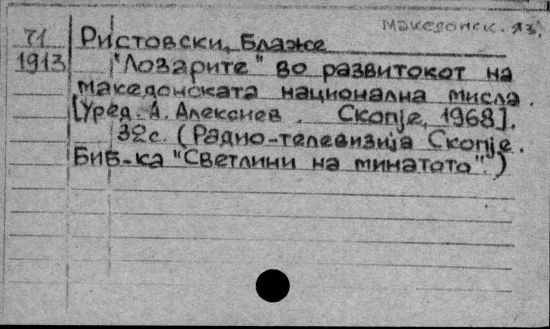 Македонск. яз.
71 Ристовски, Блаже
1913 "Лозарите" во развитокот на
македонската национална мисла.
[Уред. А. Алексиев. Скопје, 1968].
32с. (Радио-телевизија Скопје.
Биб-ка "Светлини на минатото".)